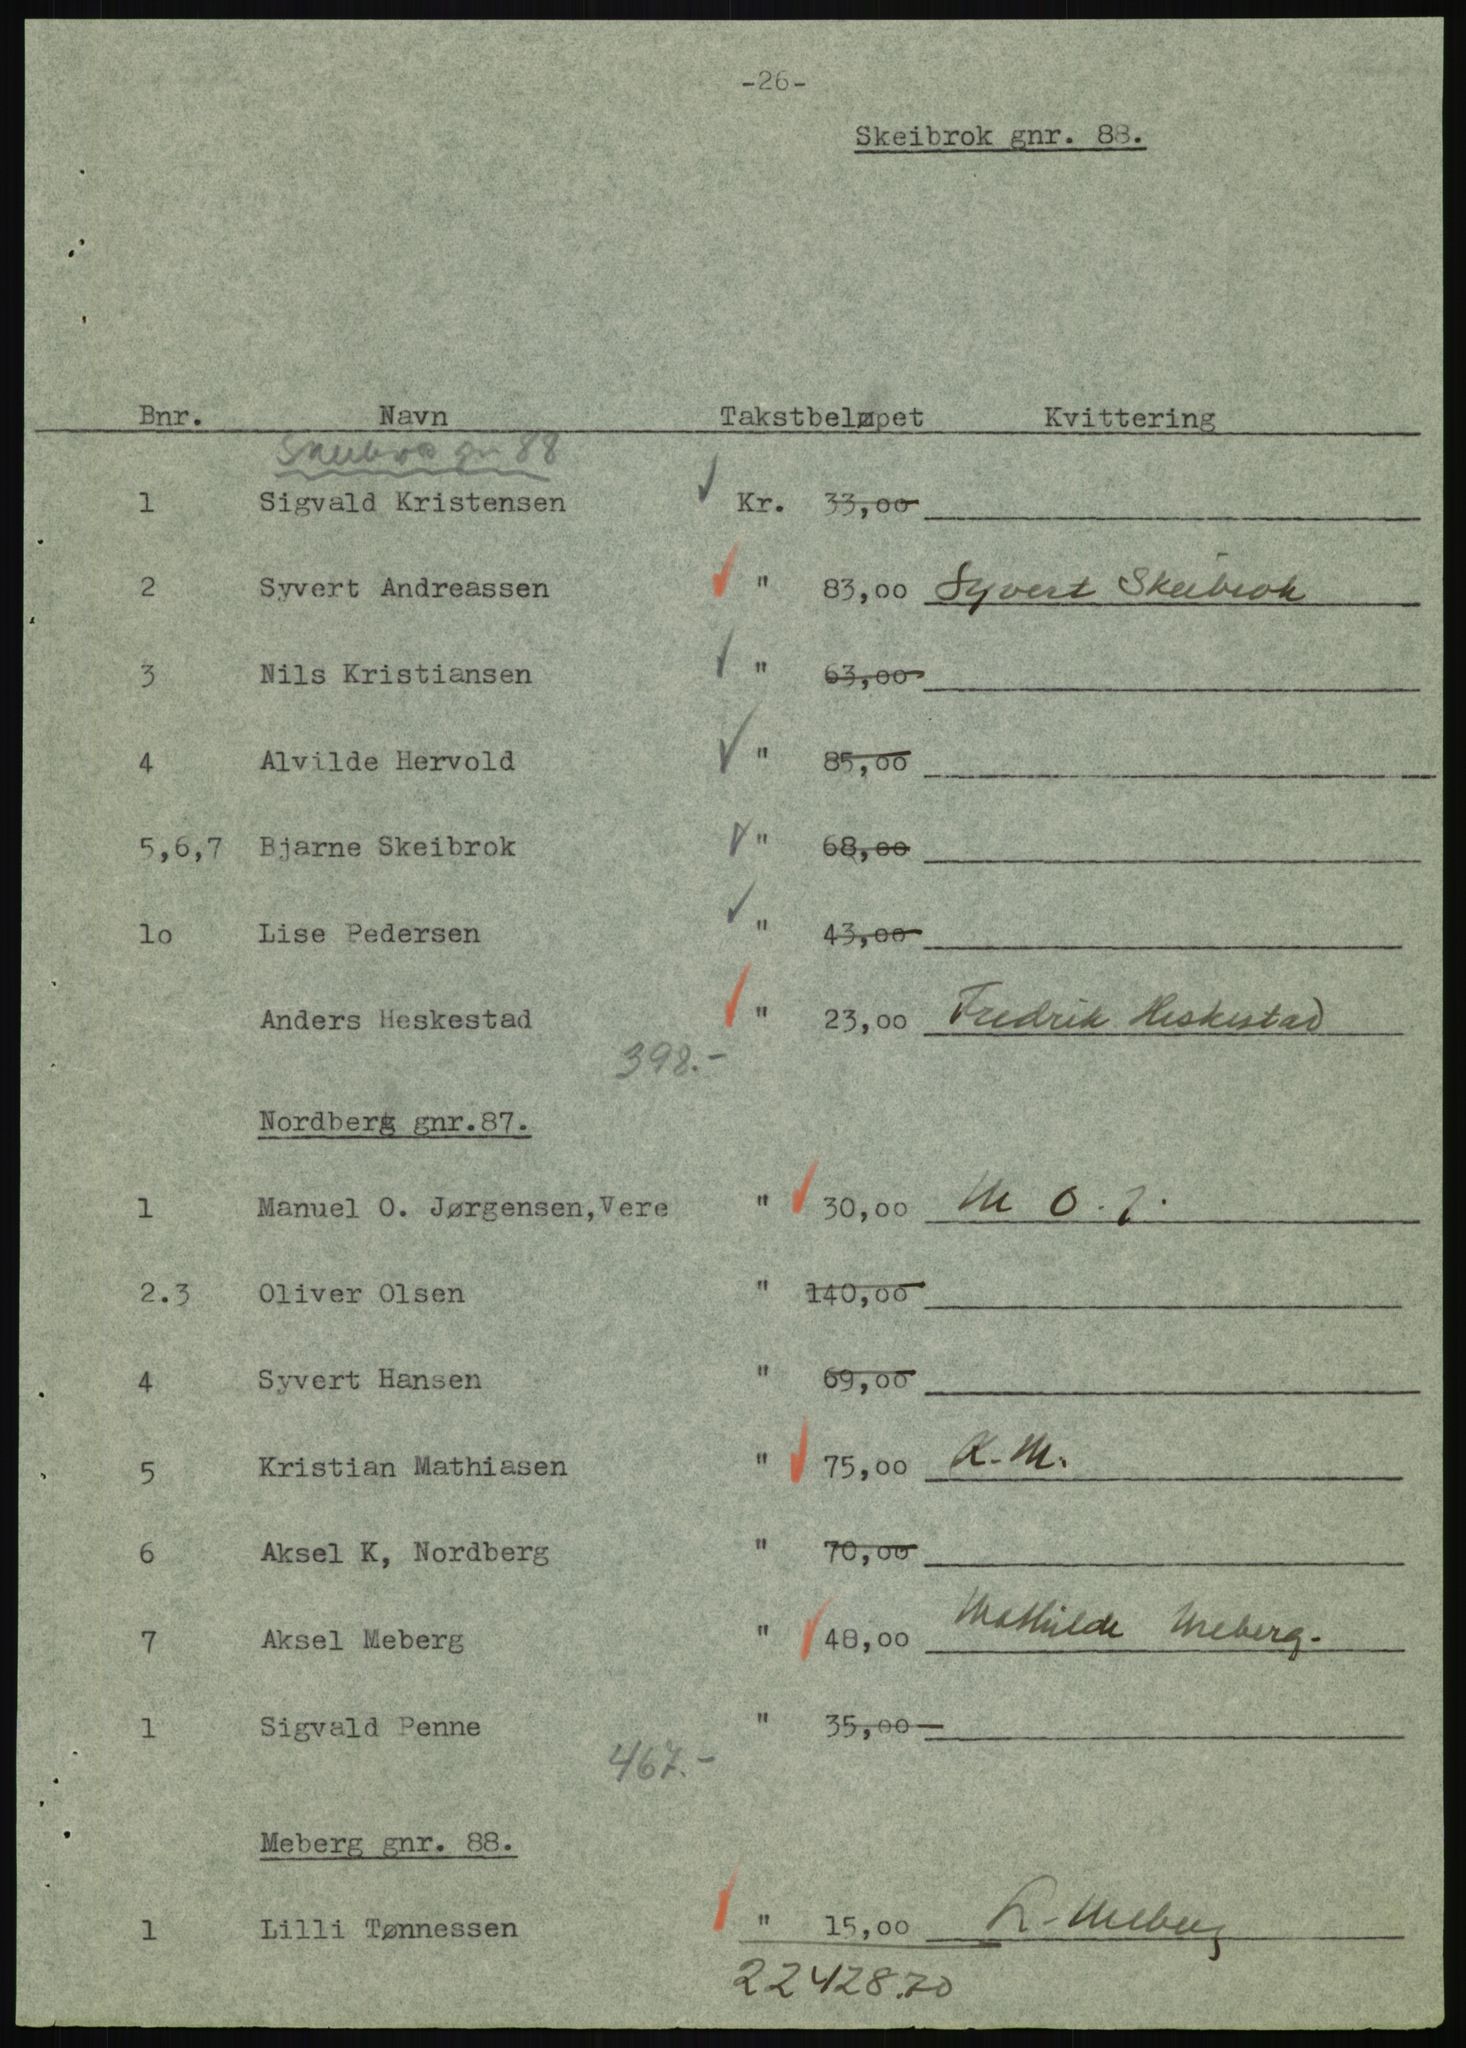 -26-
Skeibrok gnr. 88.
Bnr. Navn Takstbeløpet Kvittering
gnr 88
1 Sigvald Kristensen Kr. 33,oo
2 Syvert Andreassen " 83,oo Syvert Skeibrok
3 Nils Kristiansen " 63,oo
4 Alvilde Hervold " 85,oo
5,6,7 Bjarne Skeibrok " 68,oo
lo Lise Pedersen " 43,oo
Anders Heskestad " 23,oo Fredrik Heskestad
398.-
Nordberg gnr.87.
1 Manuel O. Jørgensen,Vere " 30,oo M O. J.
2.3 Oliver Olsen " 140,oo
4 Syvert Hansen " 69,oo
5 Kristian Mathiasen " 75,oo K. M.
6 Aksel K, Nordberg " 70,oo
7 Aksel Meberg " 48,oo Mathilde Meberg.
1 Sigvald Penne " 35,oo
467.-
Meberg gnr. 88.
1 Lilli Tønnessen " 15,oo L. Meberg
22428.70